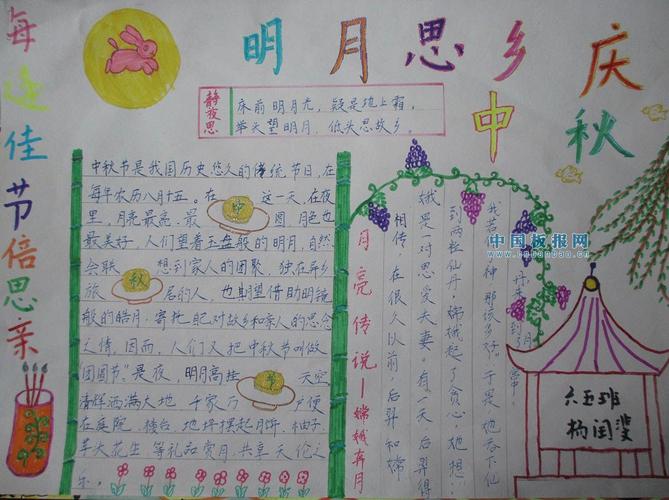 每逢佳节倍思亲
明月思乡
庆
中秋
静夜思
床前明月光，疑是地上霜。
举头望明月，低头思故乡。
中秋节是我国历史悠久的传统节日，在
每年农历八月十五。在 中 这一天，在夜
里，月亮最亮、最 圆 月色也
最美好，人们望着玉盘般的明月，自然
会联 秋 想到家人的团聚，独在异乡
旅 居的人，也期望借助明镜
般的皓月，寄托自己对故乡和亲人的思念
之情，因而，人们又把中秋节叫做
团圆节。是夜，明月高挂 天空
清辉洒满大地 千家万 户便
在庭院、楼台、地坪摆起月饼、柚子、
芋头花生 等礼品赏月，共享 天伦之
乐。
月亮传说—嫦娥奔月
相传，在很久以前，后羿和嫦
娥是一对恩爱夫妻。有一天后羿得
到两粒仙丹，嫦娥起了贪心，她想：
我若 神，那该多好。于是她吞下仙
丹，来到了月宫中。
中国板报网
www.cnbanbao.cn
六五班
杨闰斐